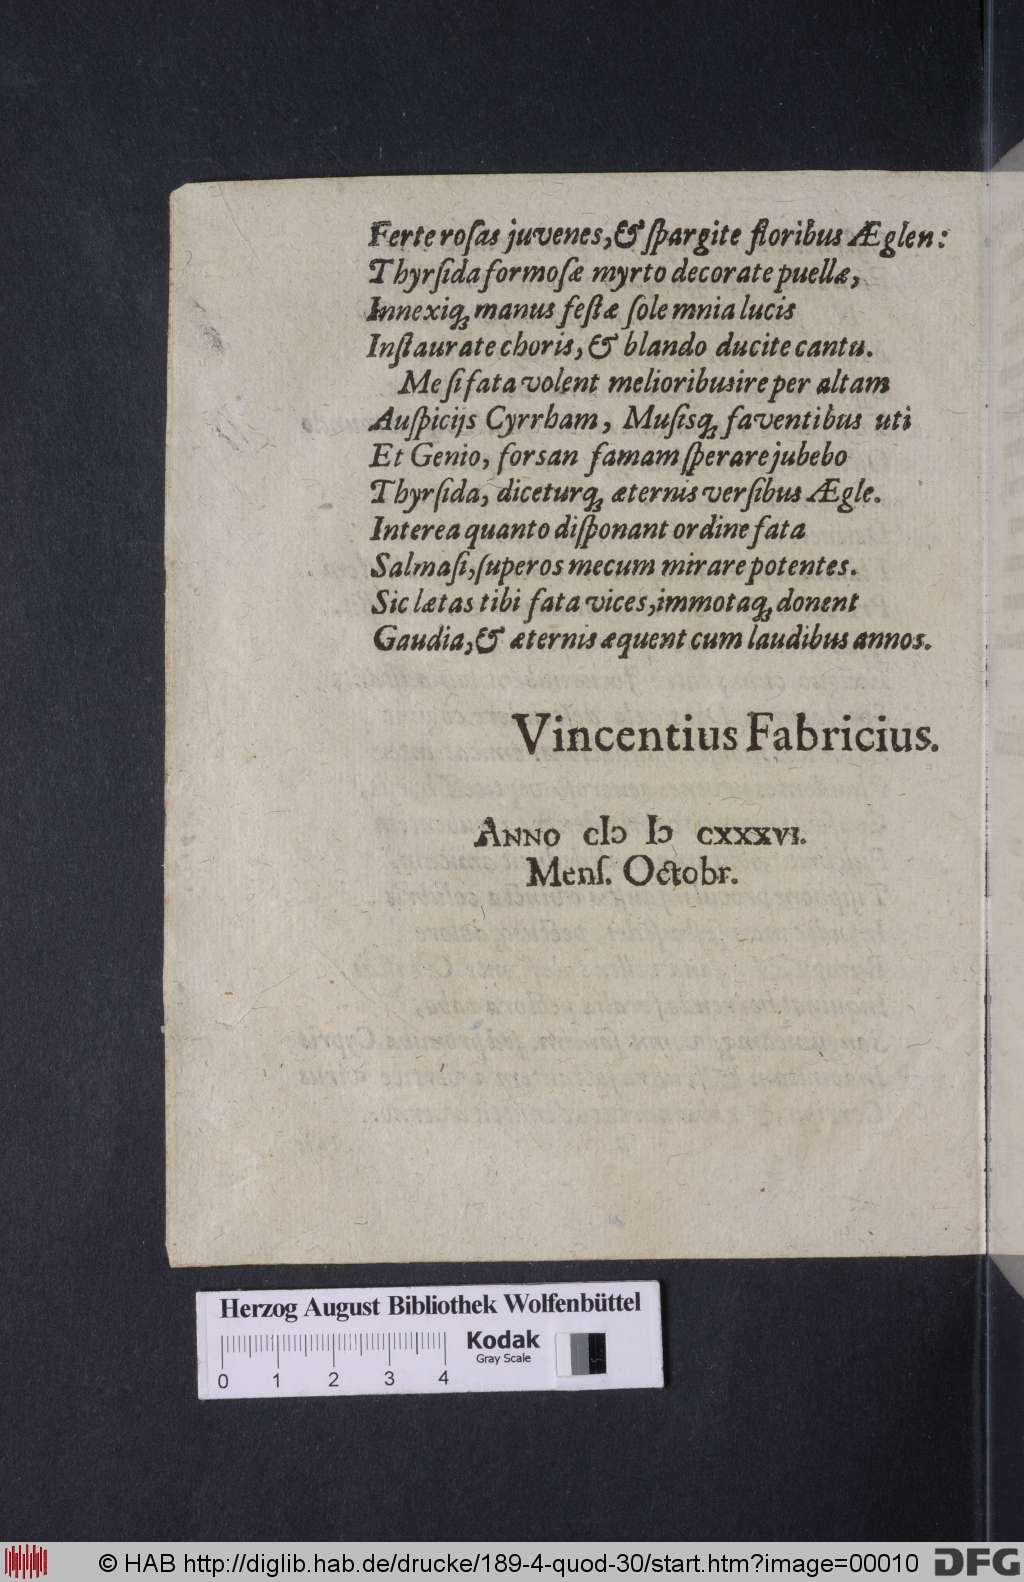 Ferte roſas juvenes, & ſpargite floribus Æglen:
Thyrſida formoſæ myrto decorate puellæ,
Innexiq́; manus feſtæ ſolemnia lucis
Inſtaurate choris, & blando ducite cantu.
Me ſi fata volent melioribus ire per altam
Auſpicijs Cyrrham, Muſisq́; faventibus uti
Et Genio, forsan famam ſperare jubebo
Thyrſida, diceturq́; æternis verſibus Ægle.
Interea quanto diſponant ordine fata
Salmaſi, ſuperos mecum mirare potentes.
Sic lætas tibi fata vices, immotaq́; donent
Gaudia, & æternis æquent cum laudibus annos.
Vincentius Fabricius.
Anno cIɔ Iɔ cxxxvi.
Menſ. Octobr.
Herzog August Bibliothek Wolfenbüttel
Kodak
Gray Scale
0 1 2 3 4
© HAB http://diglib.hab.de/drucke/189-4-quod-30/start.htm?image=00010
DFG